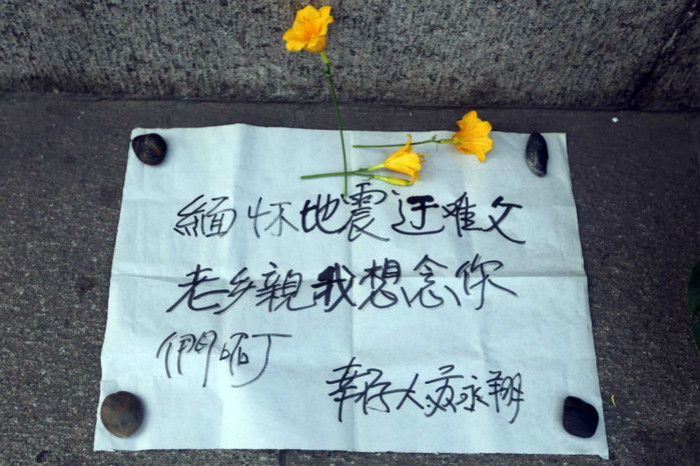 緬怀地震迂难父
老乡親我想念你
們啊
幸存人苏永翔